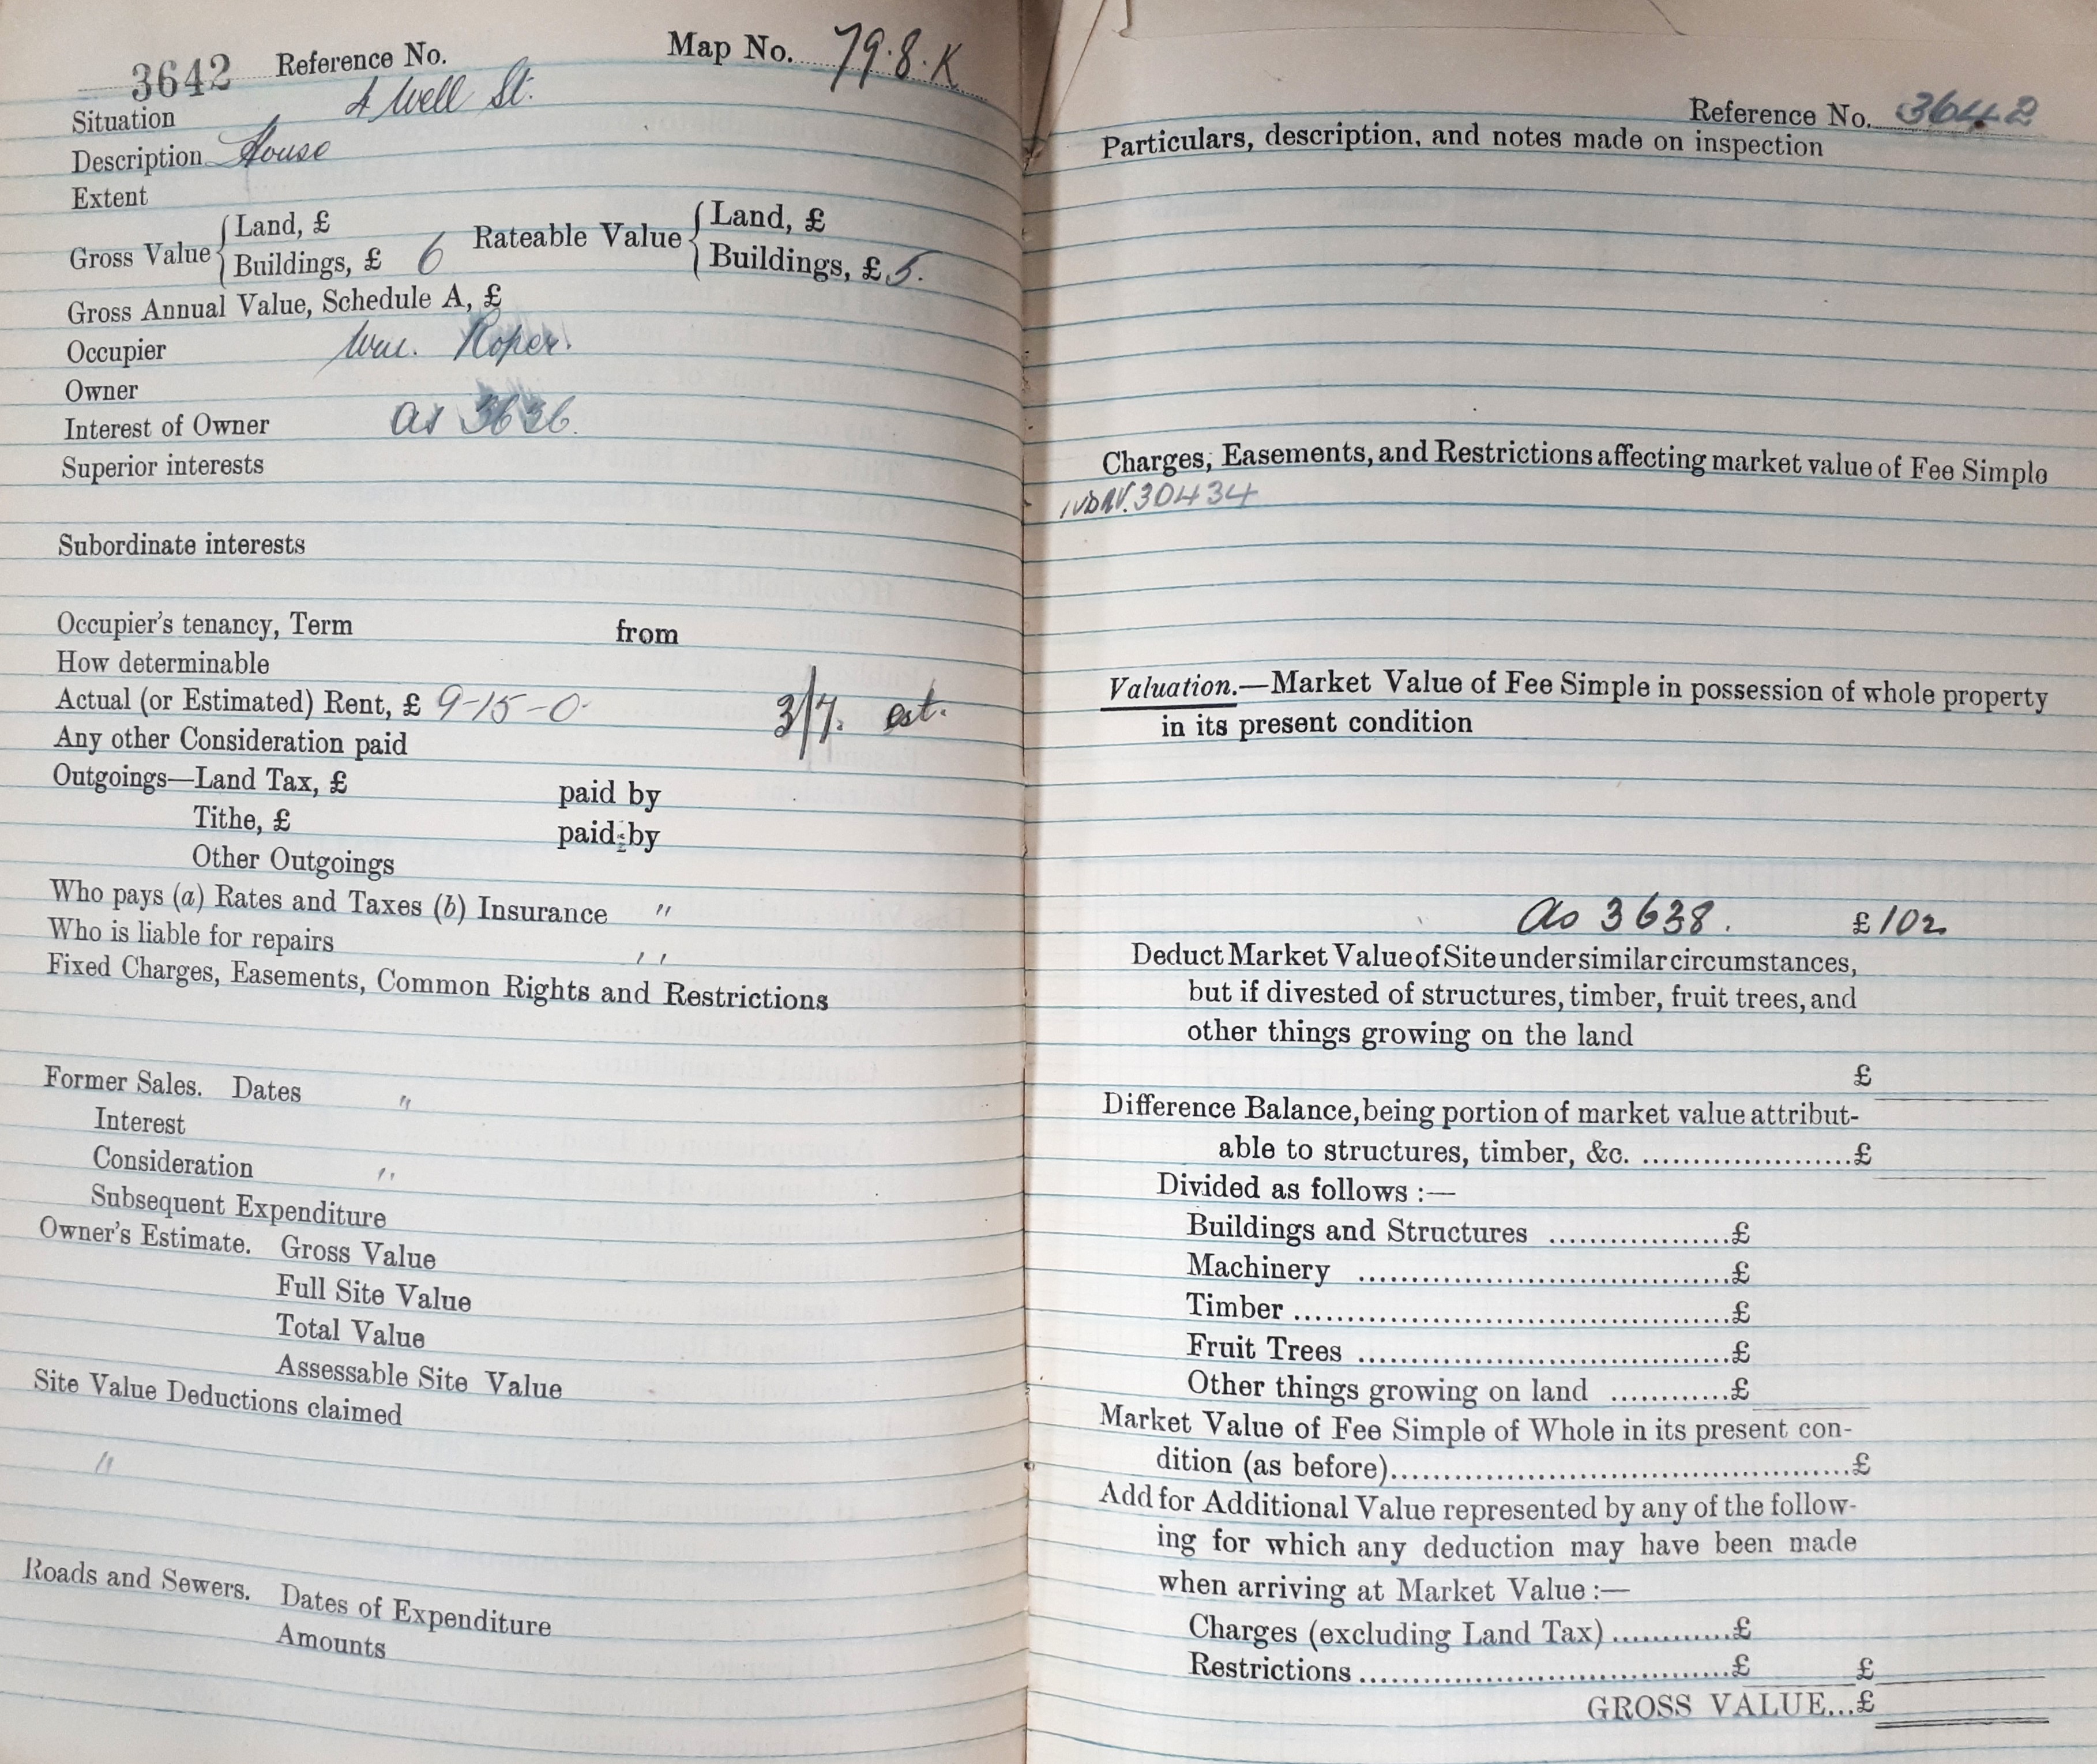 3642 Reference No. Map No. 79.8.K
Situation 4 Well St.
Description House
Extent
Gross Value { Land, £ Rateable Value { Land, £
Buildings, £ 6 Buildings, £ 5.
Gross Annual Value, Schedule A, £
Occupier Wm. Roper.
Owner
Interest of Owner as 3636.
Superior interests
Subordinate interests
Occupier's tenancy, Term from
How determinable
Actual (or Estimated) Rent, £ 9-15-0 3/9. est.
Any other Consideration paid
Outgoings—Land Tax, £ paid by
Tithe, £ paid by
Other Outgoings
Who pays (a) Rates and Taxes (b) Insurance "
Who is liable for repairs "
Fixed Charges, Easements, Common Rights and Restrictions
Former Sales. Dates "
Interest
Consideration "
Subsequent Expenditure
Owner's Estimate. Gross Value
Full Site Value
Total Value
Assessable Site Value
Site Value Deductions claimed
"
Roads and Sewers. Dates of Expenditure
Amounts
Reference No. 3642
Particulars, description, and notes made on inspection
Charges, Easements, and Restrictions affecting market value of Fee Simple
30434
Valuation.—Market Value of Fee Simple in possession of whole property
in its present condition
as 3638. £102
Deduct Market Value of Site under similar circumstances,
but if divested of structures, timber, fruit trees, and
other things growing on the land
£
Difference Balance, being portion of market value attribut-
able to structures, timber, &c. ....................£
Divided as follows :—
Buildings and Structures ..................£
Machinery .....................................£
Timber ...........................................£
Fruit Trees .....................................£
Other things growing on land ............£
Market Value of Fee Simple of Whole in its present con-
dition (as before)..............................................£
Add for Additional Value represented by any of the follow-
ing for which any deduction may have been made
when arriving at Market Value :—
Charges (excluding Land Tax) ............£
Restrictions .....................................£ £
GROSS VALUE...£